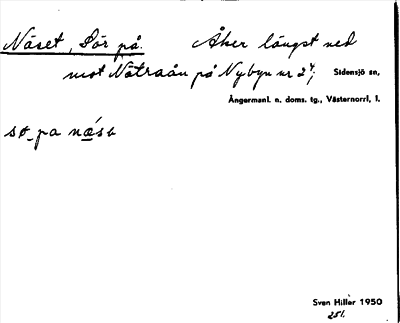 Näset, Sör på. Åker längst ned
mot Nätraån på Nybyn nr 2⁴; Sidensjö sn,
Ångermanl. n. doms. tg., Västernorrl, l.
sø̱ pa nǽ̱sə
Sven Hillèr 1950
251.